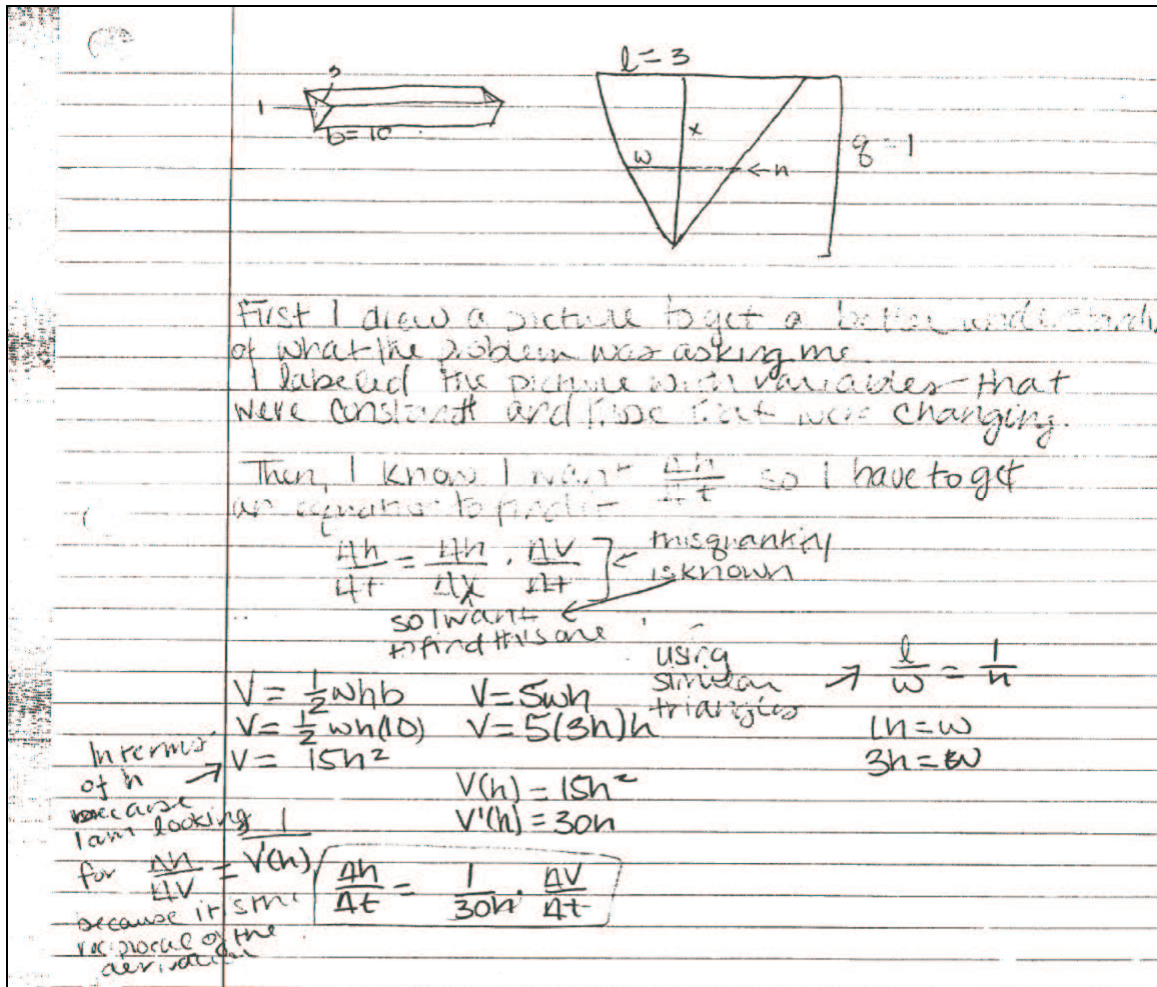 l = 3
3
1
b = 10
x
w
← h
g = 1
First I drew a picture to get a better understand
of what the problem was asking me
I labeled the picture with variables that
were constant and those that were changing.
Then, I know I want Δh/Δt so I have to get
an equation to find it
Δh/Δt = Δh/ΔV · ΔV/Δt ] ← this quantity
is known
so I want
to find this one
using
similar
triangles → l/w = 1/h
lh = w
3h = w
V = 1/2 whb V = 5wh
V = 1/2 wh(10) V = 5(3h)h
V = 15h²
In terms
of h →
because
I am looking
for Δh/ΔV = 1/V'(h)
because it's the
reciprocal of the
derivative
V(h) = 15h²
V'(h) = 30h
Δh/Δt = 1/30h · ΔV/Δt